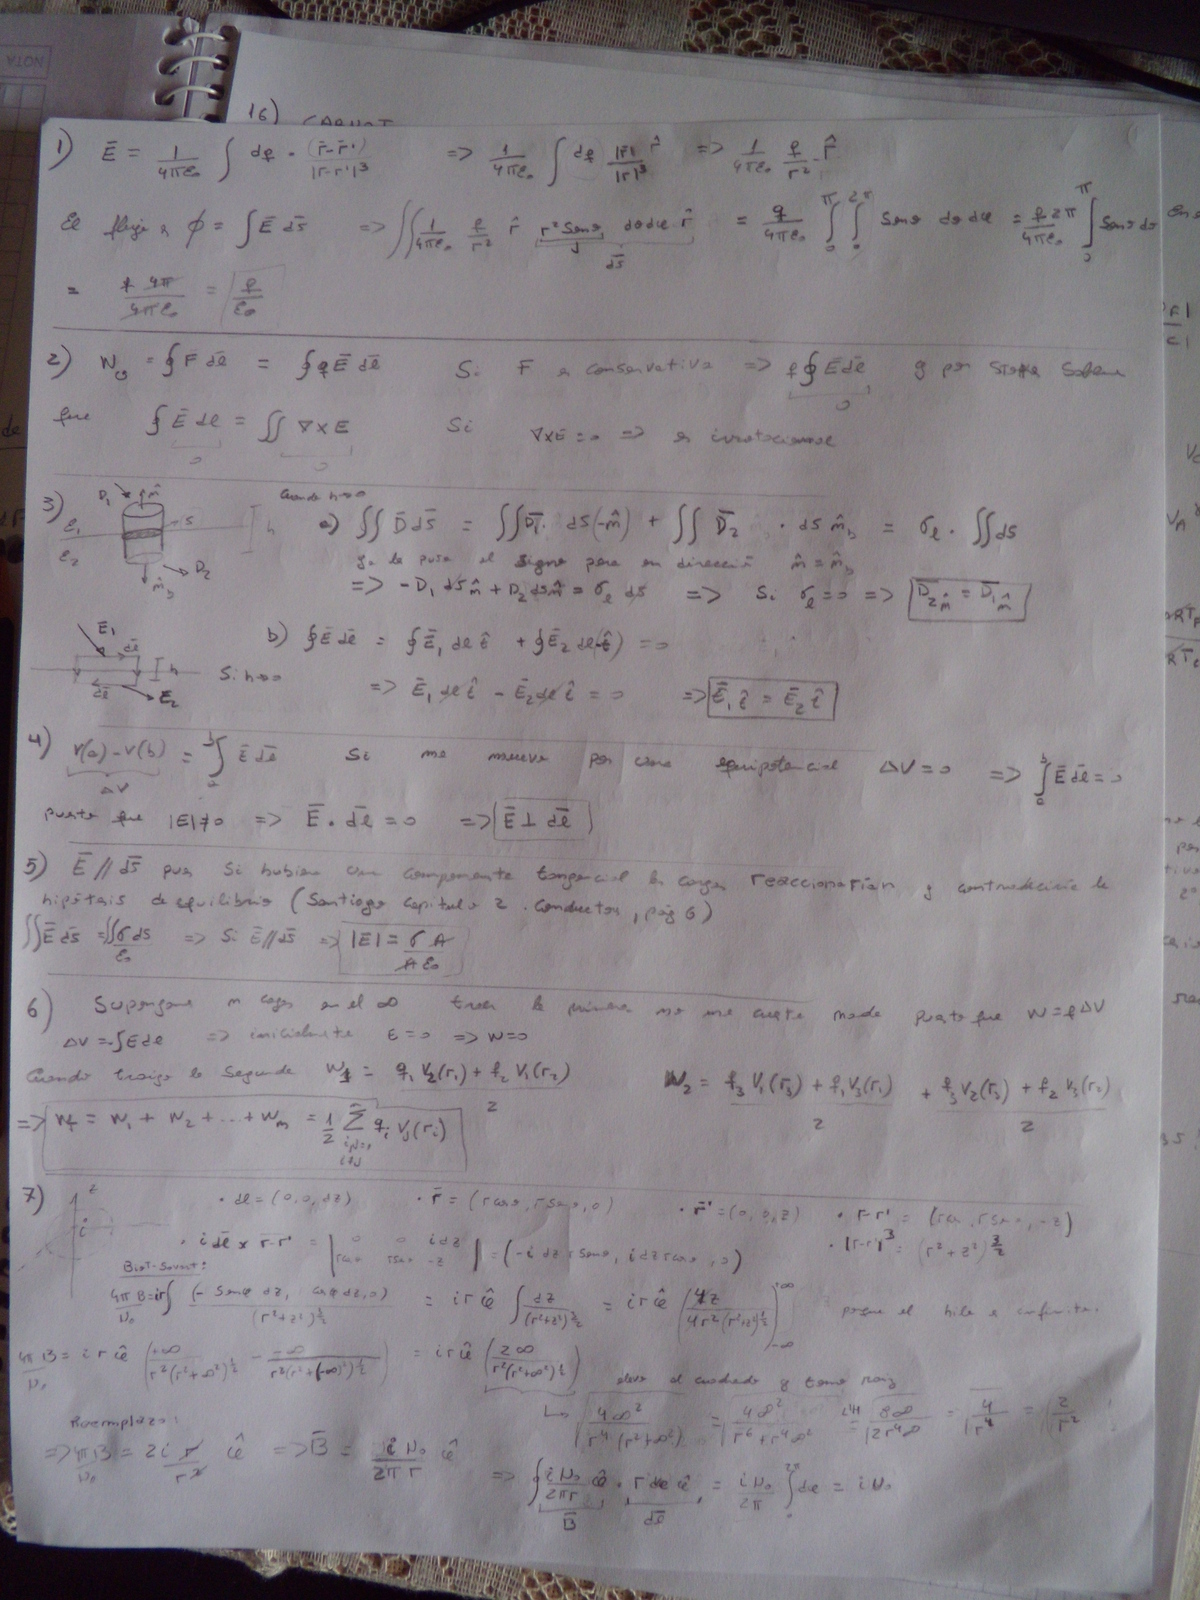 NOTA
16) CARNOT
1) Ē = 1/4πε₀ ∫ dq · (r̄-r̄')/|r-r'|³ => 1/4πε₀ ∫ dq |r̄|/|r|³ r̂ => 1/4πε₀ q/r² · r̂
El flujo es ϕ = ∫ Ē ds̄ => ∬ 1/4πε₀ q/r² r̂ r² senθ dθ dφ r̂ = q/4πε₀ ∫₀^π ∫₀^2π senθ dθ dφ = q 2π/4πε₀ ∫₀^π senθ dθ
ds̄
= q 4π/4πε₀ = q/ε₀
2) W = ∮ F dl̄ = ∮ q Ē dl̄ Si F es conservativa => q ∮ Ē dl̄ y por Stokes sabemos
0
que ∮ Ē dl = ∬ ∇×E Si ∇×E = 0 => es irrotacional
0 0
3) D₁ n̂ S h ε₁ ε₂ D₂
Cuando h→0
a) ∬ D̄ ds̄ = ∬ D̄₁ · ds(-n̂) + ∬ D̄₂ · ds n̂ = σ · ∬ ds
=> -D₁ ds n̂ + D₂ ds n̂ = σ ds => Si σ = 0 => D̄₂n̂ = D̄₁n̂
Ē₁ dl̄ h dl̄ Ē₂
Si h→0
b) ∮ Ē dl̄ = ∮ Ē₁ dl t̂ + ∮ Ē₂ dl(-t̂) = 0
=> Ē₁ dl t̂ - Ē₂ dl t̂ = 0 => Ē₁ t̂ = Ē₂ t̂
4) V(a) - V(b) = ∫ Ē dl̄ Si me muevo por una equipotencial ΔV = 0 => ∫ Ē dl̄ = 0
ΔV
puesto que |E| ≠ 0 => Ē · dl̄ = 0 => Ē ⊥ dl̄
5) Ē // ds̄ pues si hubiera una componente tangencial las cargas reaccionarían y contradeciría la
hipótesis de equilibrio (Santiago Capitulo 2 . Conductores, pág 6)
∬ Ē ds̄ = ∬ σ ds/ε₀ => Si Ē // ds̄ => |E| = σ A/A ε₀
6) Supongamos n cargas en el ∞ traer la primera no me cuesta nada puesto que W = q ΔV
ΔV = -∫ E dl => inicialmente E = 0 => W = 0
Cuando traigo la segunda W₁ = (q₁ V₂(r₁) + q₂ V₁(r₂))/2 W₂ = (q₃ V₁(r₃) + q₁ V₃(r₁))/2 + (q₃ V₂(r₃) + q₂ V₃(r₂))/2
=> W = W₁ + W₂ + ... + Wₙ = 1/2 Σ qᵢ Vⱼ(rᵢ)
7) z i · dl = (0, 0, dz) · r̄ = (r cosθ, r senθ, 0) · r̄' = (0, 0, z) · r-r' = (r cos, r sen, -z)
· i dl̄ × r-r' = | 0 0 i dz / r cos r sen -z | = (-i dz r senθ, i dz r cosθ, 0) · |r-r'|³ = (r²+z²)^3/2
Biot-Savart:
4π/μ₀ B = ir ∫ (-senφ dz, cosφ dz, 0)/(r²+z²)^3/2 = i r φ̂ ∫ dz/(r²+z²)^3/2 = i r φ̂ (4z/4r²(r²+z²)^1/2) +∞ -∞ porque el hilo es infinito.
4π/μ₀ B = i r φ̂ (+∞/r²(r²+∞²)^1/2 - -∞/r²(r²+(-∞)²)^1/2) = i r φ̂ (2∞/r²(r²+∞²)^1/2)
elevo al cuadrado y tomo raiz
↳ √4∞²/r⁴(r²+∞²) = √4∞²/r⁶+r⁴∞² = L'H √8∞/2r⁴∞ = √4/r⁴ = 2/r²
Reemplazo:
=> 4π/μ₀ B = 2i r/r² φ̂ => B̄ = i μ₀/2π r φ̂
=> ∮ i μ₀/2πr φ̂ · r dφ φ̂ = i μ₀/2π ∫ dφ = i μ₀
B̄ dl̄